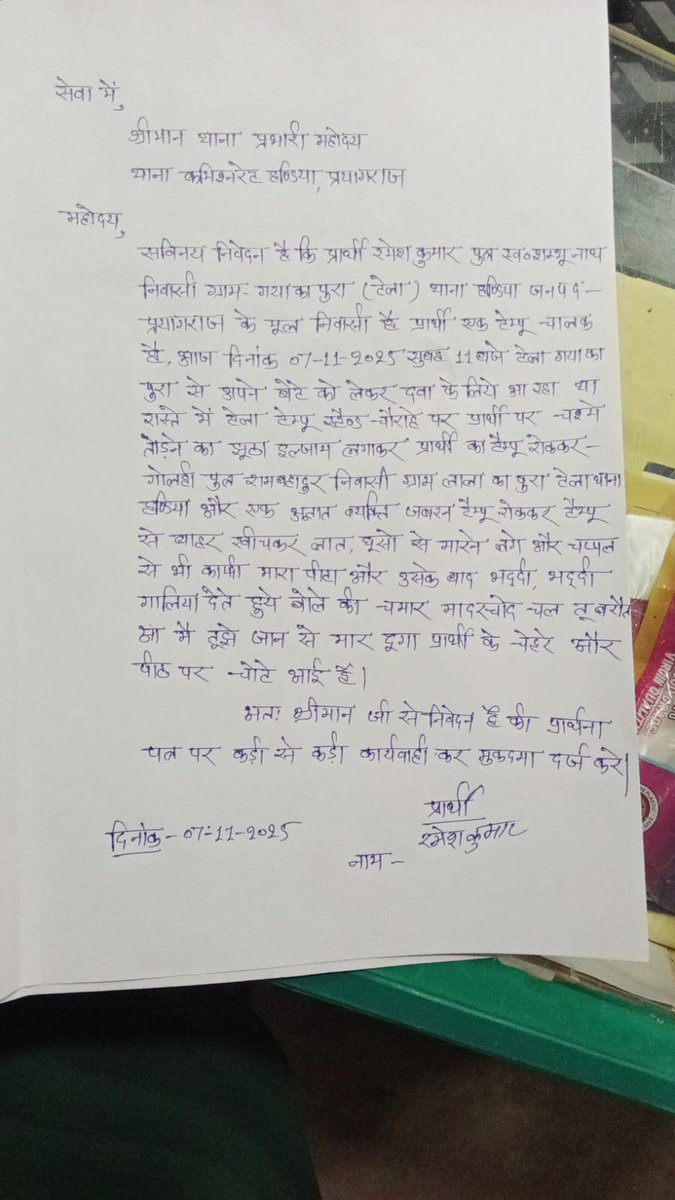 सेवा में,
श्रीमान थाना प्रभारी महोदय
थाना कमिश्नरेट हण्डिया, प्रयागराज
महोदय,
सविनय निवेदन है कि प्रार्थी रमेश कुमार पुत्र स्व० शम्भू नाथ
निवासी ग्राम - गया का पुरा (टेला) थाना हण्डिया जनपद -
प्रयागराज के मूल निवासी है प्रार्थी एक टेम्पू चालक
है, आज दिनांक 07-11-2025 सुबह 11 बजे टेला गया का
पुरा से अपने बेटे को लेकर दवा के लिये आ रहा था
रास्ते में टेला टेम्पू स्टैण्ड चौराहे पर प्रार्थी पर चश्मे
तोड़ने का झूठा इल्जाम लगाकर प्रार्थी का टैम्पू रोककर -
गोलही पुत्र रामबहादुर निवासी ग्राम लाला का पुरा टेला थाना
हण्डिया और एक अज्ञात व्यक्ति जबरन टैम्पू रोककर टैम्पू
से बाहर खीचकर लात, घूसो से मारने लगे और चप्पल
से भी काफी मारा पीटा और उसके बाद भददी, भददी
गालियां देते हुये बोले की चमार मादरचोद चल तू बरौत
आ मै तूझे जान से मार दूगा प्रार्थी के चेहरे और
पीठ पर चोटे आई है।
अतः श्रीमान जी से निवेदन है की प्रार्थना
पत्र पर कड़ी से कड़ी कार्यवाही कर मुकदमा दर्ज करे।
प्रार्थी
दिनांक - 07-11-2025
रमेश कुमार
नाम -
VIRGIN